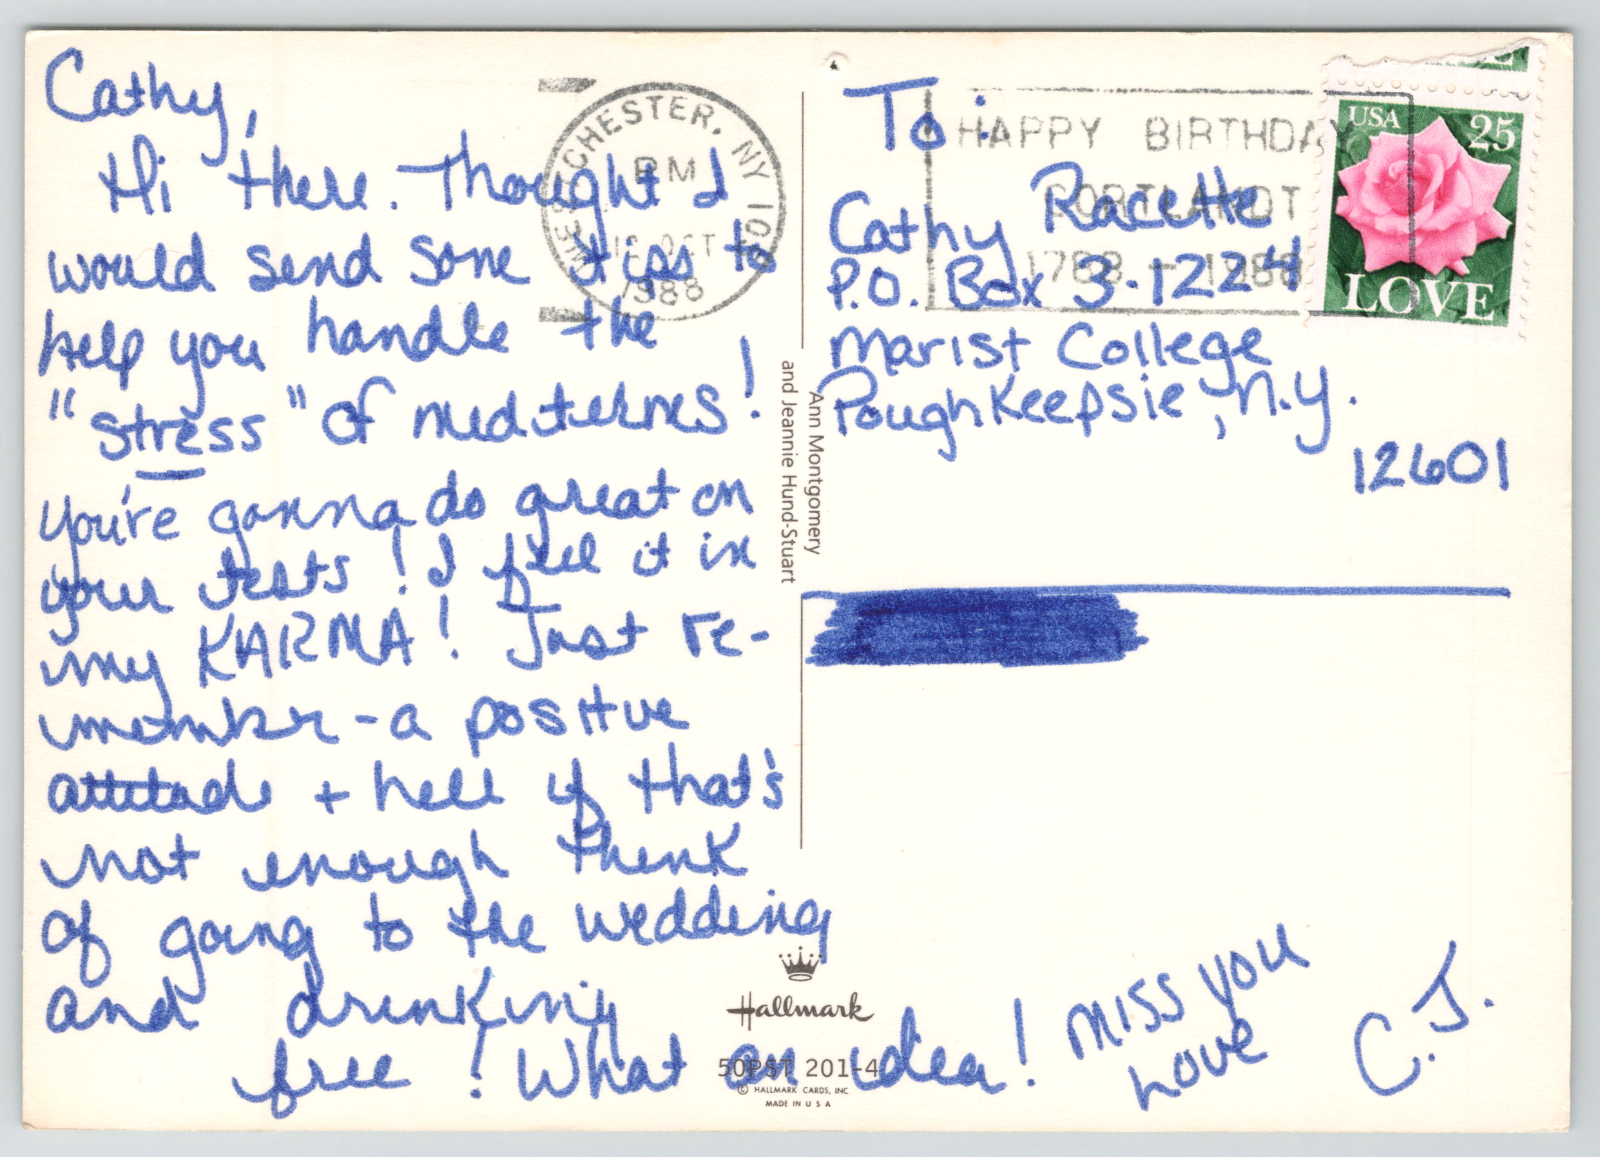 Cathy,
Hi there. Thought I
would send some tips to
help you handle the
"stress" of midterms!
You're gonna do great on
your tests! I feel it in
my KARMA! Just re-
member - a positive
attitude + hell if that's
not enough think
of going to the wedding
and drinking
free! What an idea!
Miss you
Love
C.J.
WESTCHESTER, NY 108
PM
OCT
1988
HAPPY BIRTHDAY
CORTLANDT
1788 - 1988
USA 25
LOVE
To:
Cathy Racette
P.O. Box 3-1224
Marist College
Poughkeepsie, N.Y.
12601
Ann Montgomery
and Jeannie Hund-Stuart
Hallmark
50PST 201-4
© HALLMARK CARDS, INC.
MADE IN U S A